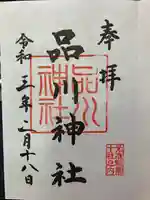 奉拝
品川神社
品川神社
令和三年二月十八日